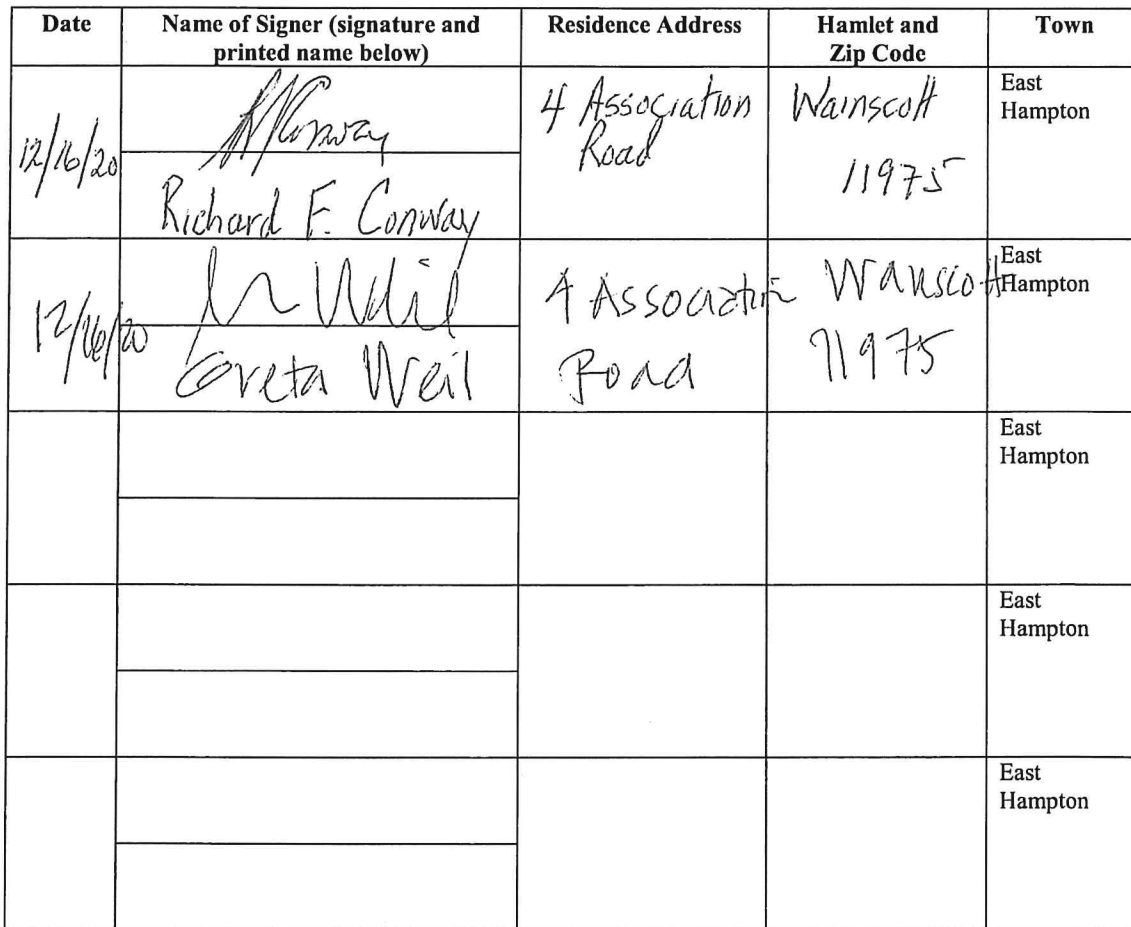 Date Name of Signer (signature and printed name below) Residence Address Hamlet and Zip Code Town
12/16/20
Conway
Richard F. Conway
4 Association
Road
Wainscott
11975
East
Hampton
12/16/20
Weil
Greta Weil
4 Association
Road
Wainscott
11975
East
Hampton
East
Hampton
East
Hampton
East
Hampton